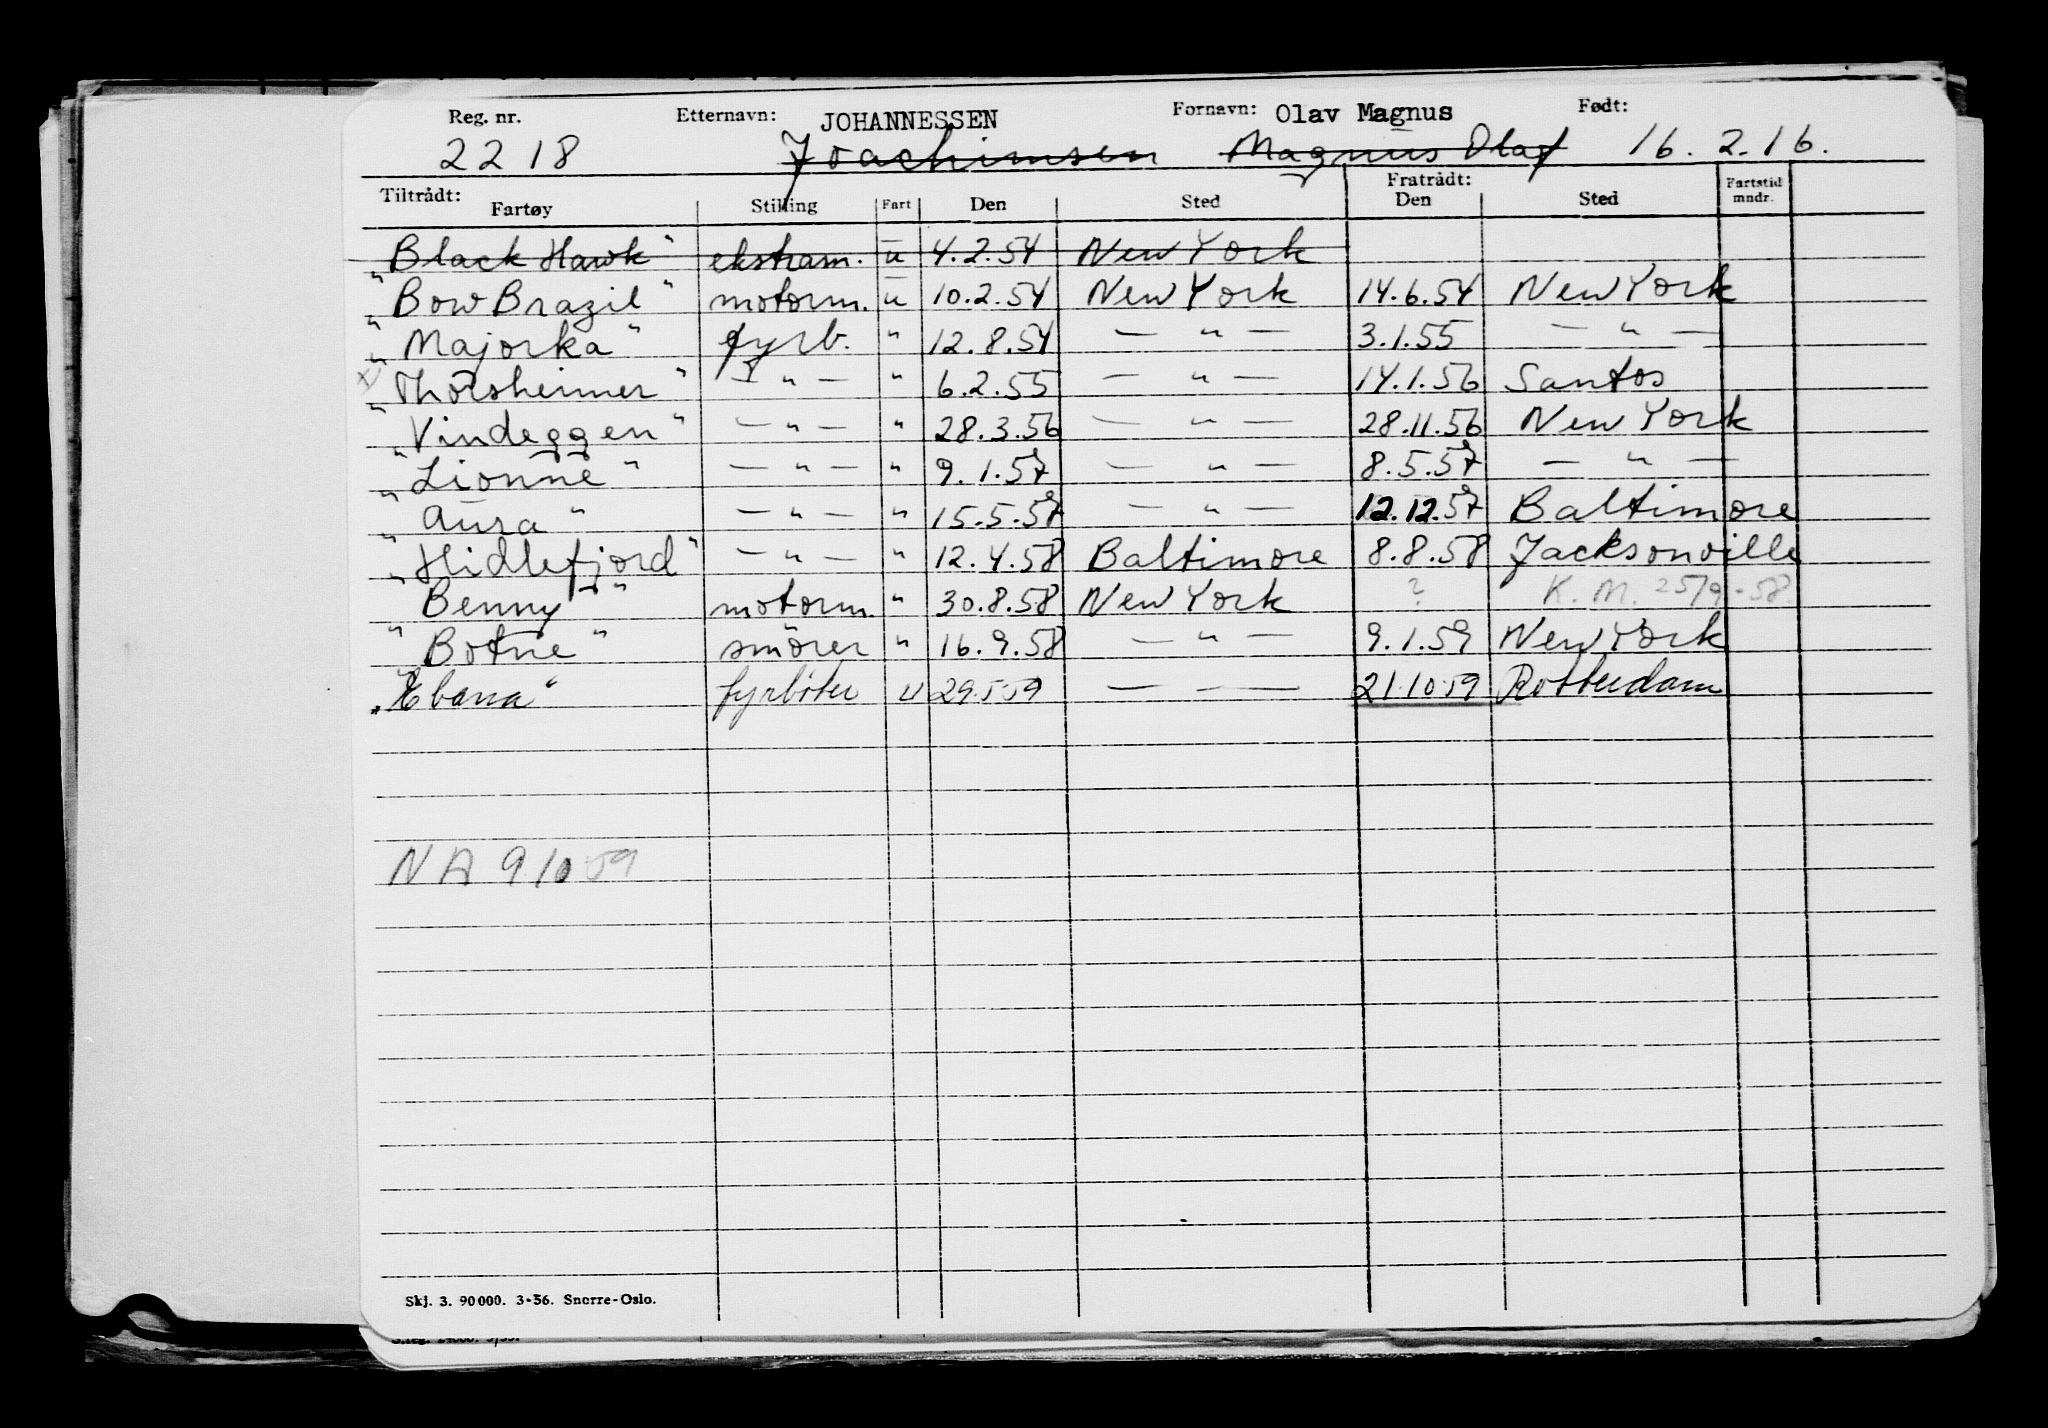 Reg. nr. Etternavn: JOHANNESSEN Fornavn: Olav Magnus Født:
2218 Joachimsen Magnus Olaf 16.2.16.
Tiltrådt: Fratrådt:
Fartøy Stilling Fart Den Sted Den Sted Fartstid mndr.
"Black Hawk" ekstram. u 4.2.54 New York
"Bow Brazil" motorm. u 10.2.54 New York 14.6.54 New York
"Majorka" fyrb. " 12.8.54 — " — 3.1.55 — " —
"Thorsheimer" — " — " 6.2.55 — " — 14.1.56 Santos
"Vindeggen" — " — " 28.3.56 — " — 28.11.56 New York
"Lionne" — " — " 9.1.57 — " — 8.5.57 — " —
"Aura" — " — " 15.5.57 — " — 12.12.57 Baltimore
"Hidlefjord" — " — " 12.4.58 Baltimore 8.8.58 Jacksonville
"Benny" motorm. " 30.8.58 New York ? K.M. 25/9-58.
"Botne" smörer " 16.9.58 — " — 9.1.59 New York
"Ebana" fyrböter u 29.5.59 — - — 21.10.59 Rotterdam
NA 9/10 59
Skj. 3. 90000. 3-56. Snorre-Oslo.